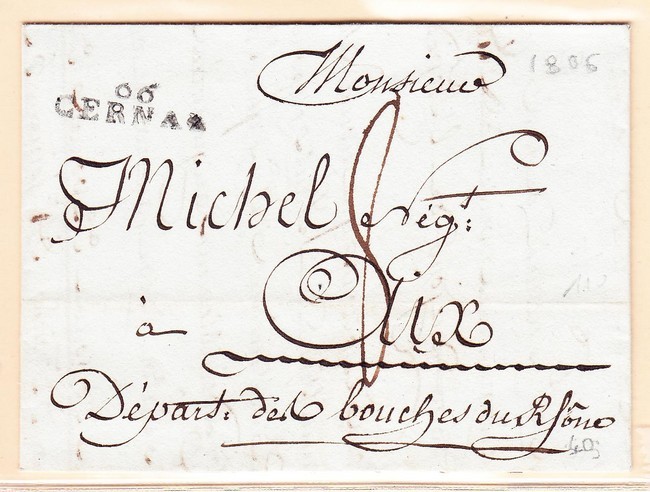 Monsieur
1806
66
CERNAY
Michel Nég.t
8
à Aix
Départ. des bouches du Rhône